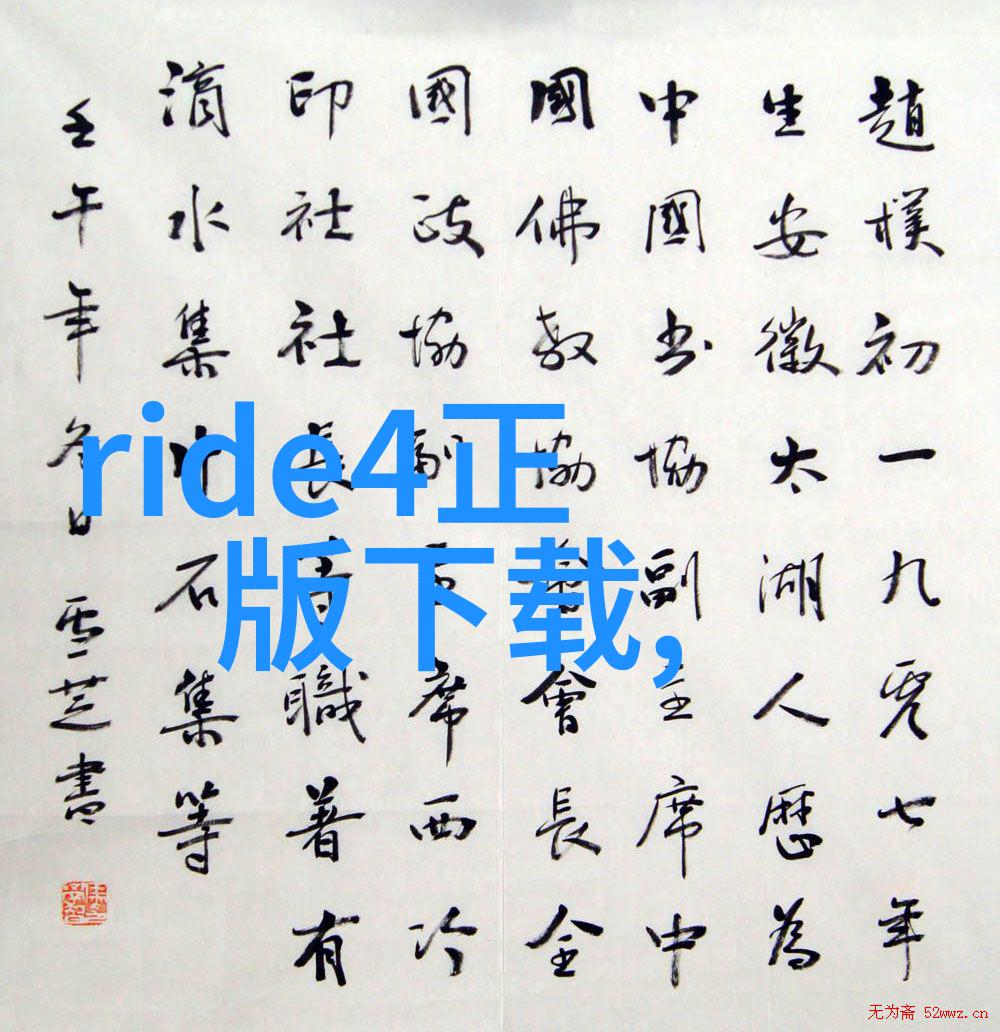 趙樸初一九零七年
生安徽太湖人歷為
中國書協副主席中
國佛教協會會長全
國政協副主席西泠
印社社長等職著有
滴水集片石集等
壬午年冬日雪芝書
ride4正
版下载,
无为斋 52wwz.cn